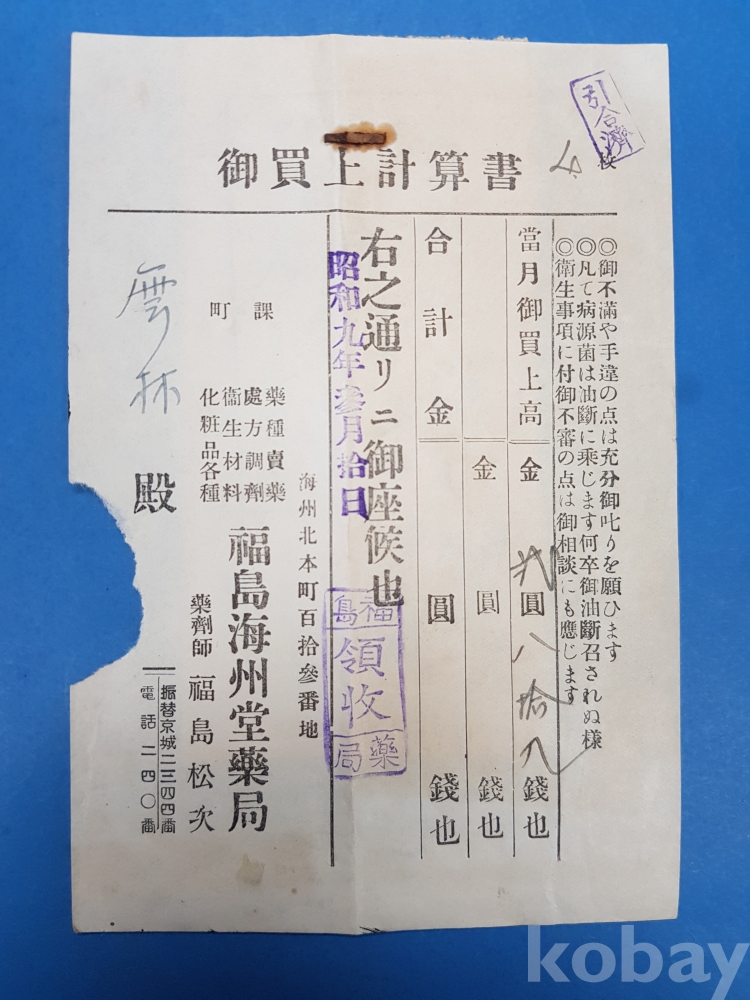 引合濟
枚
御買上計算書
◎御不滿や手違の点は充分御叱りを願ひます
◎凡て病源菌は油斷に乗じます何卒御油斷召されぬ様
◎衛生事項に付御不審の点は御相談にも應じます
當月御買上高 金 弐圓 八拾九錢也
金 圓 錢也
合計金 圓 錢也
右之通リニ御座候也
昭和九年参月拾日
福島
領收
藥局
海州北本町百拾參番地
藥種賣藥
處方調劑
衛生材料
化粧品各種
福島海州堂藥局
藥劑師 福島松次
振替京城二三四四番
電話二四〇番
課
町
雲林 殿
kobay